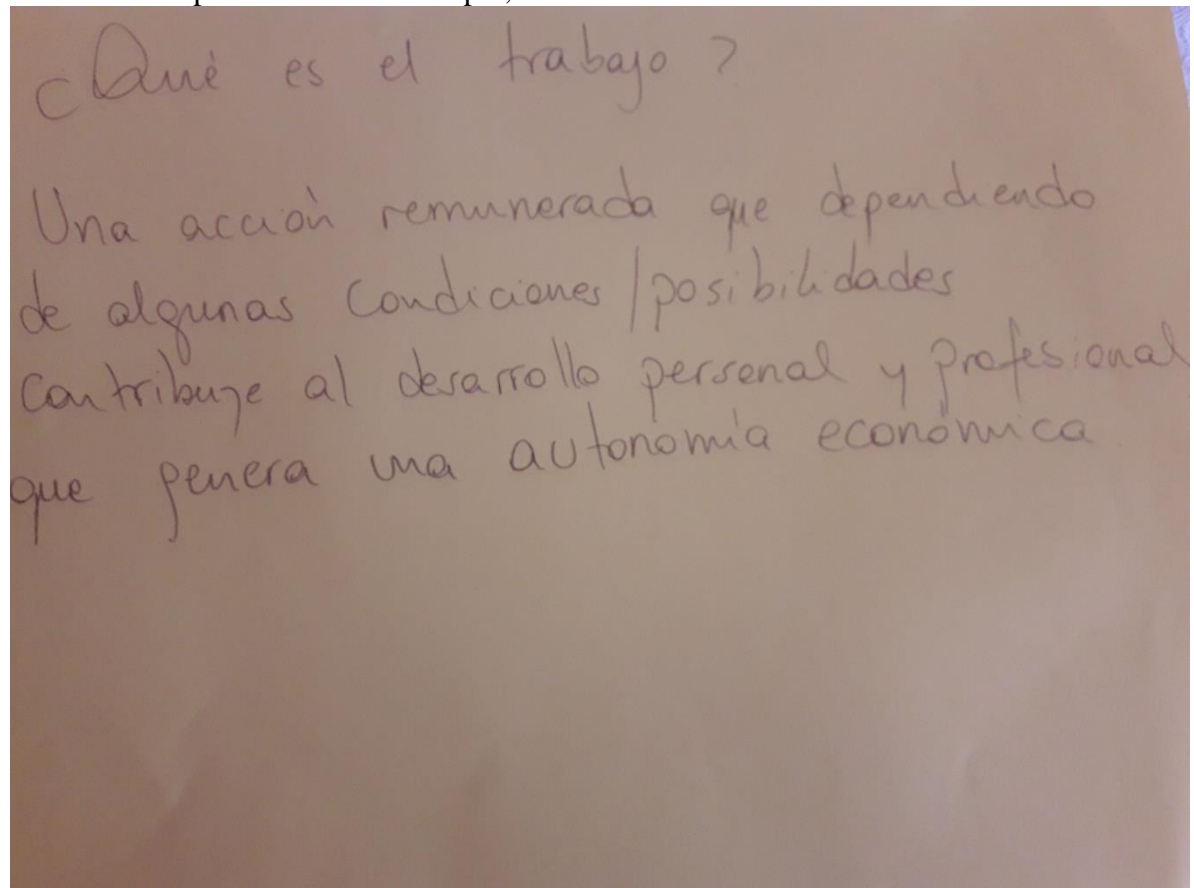 ¿Qué es el trabajo?
Una acción remunerada que dependiendo
de algunas condiciones/posibilidades
contribuye al desarrollo personal y profesional
que genera una autonomía económica